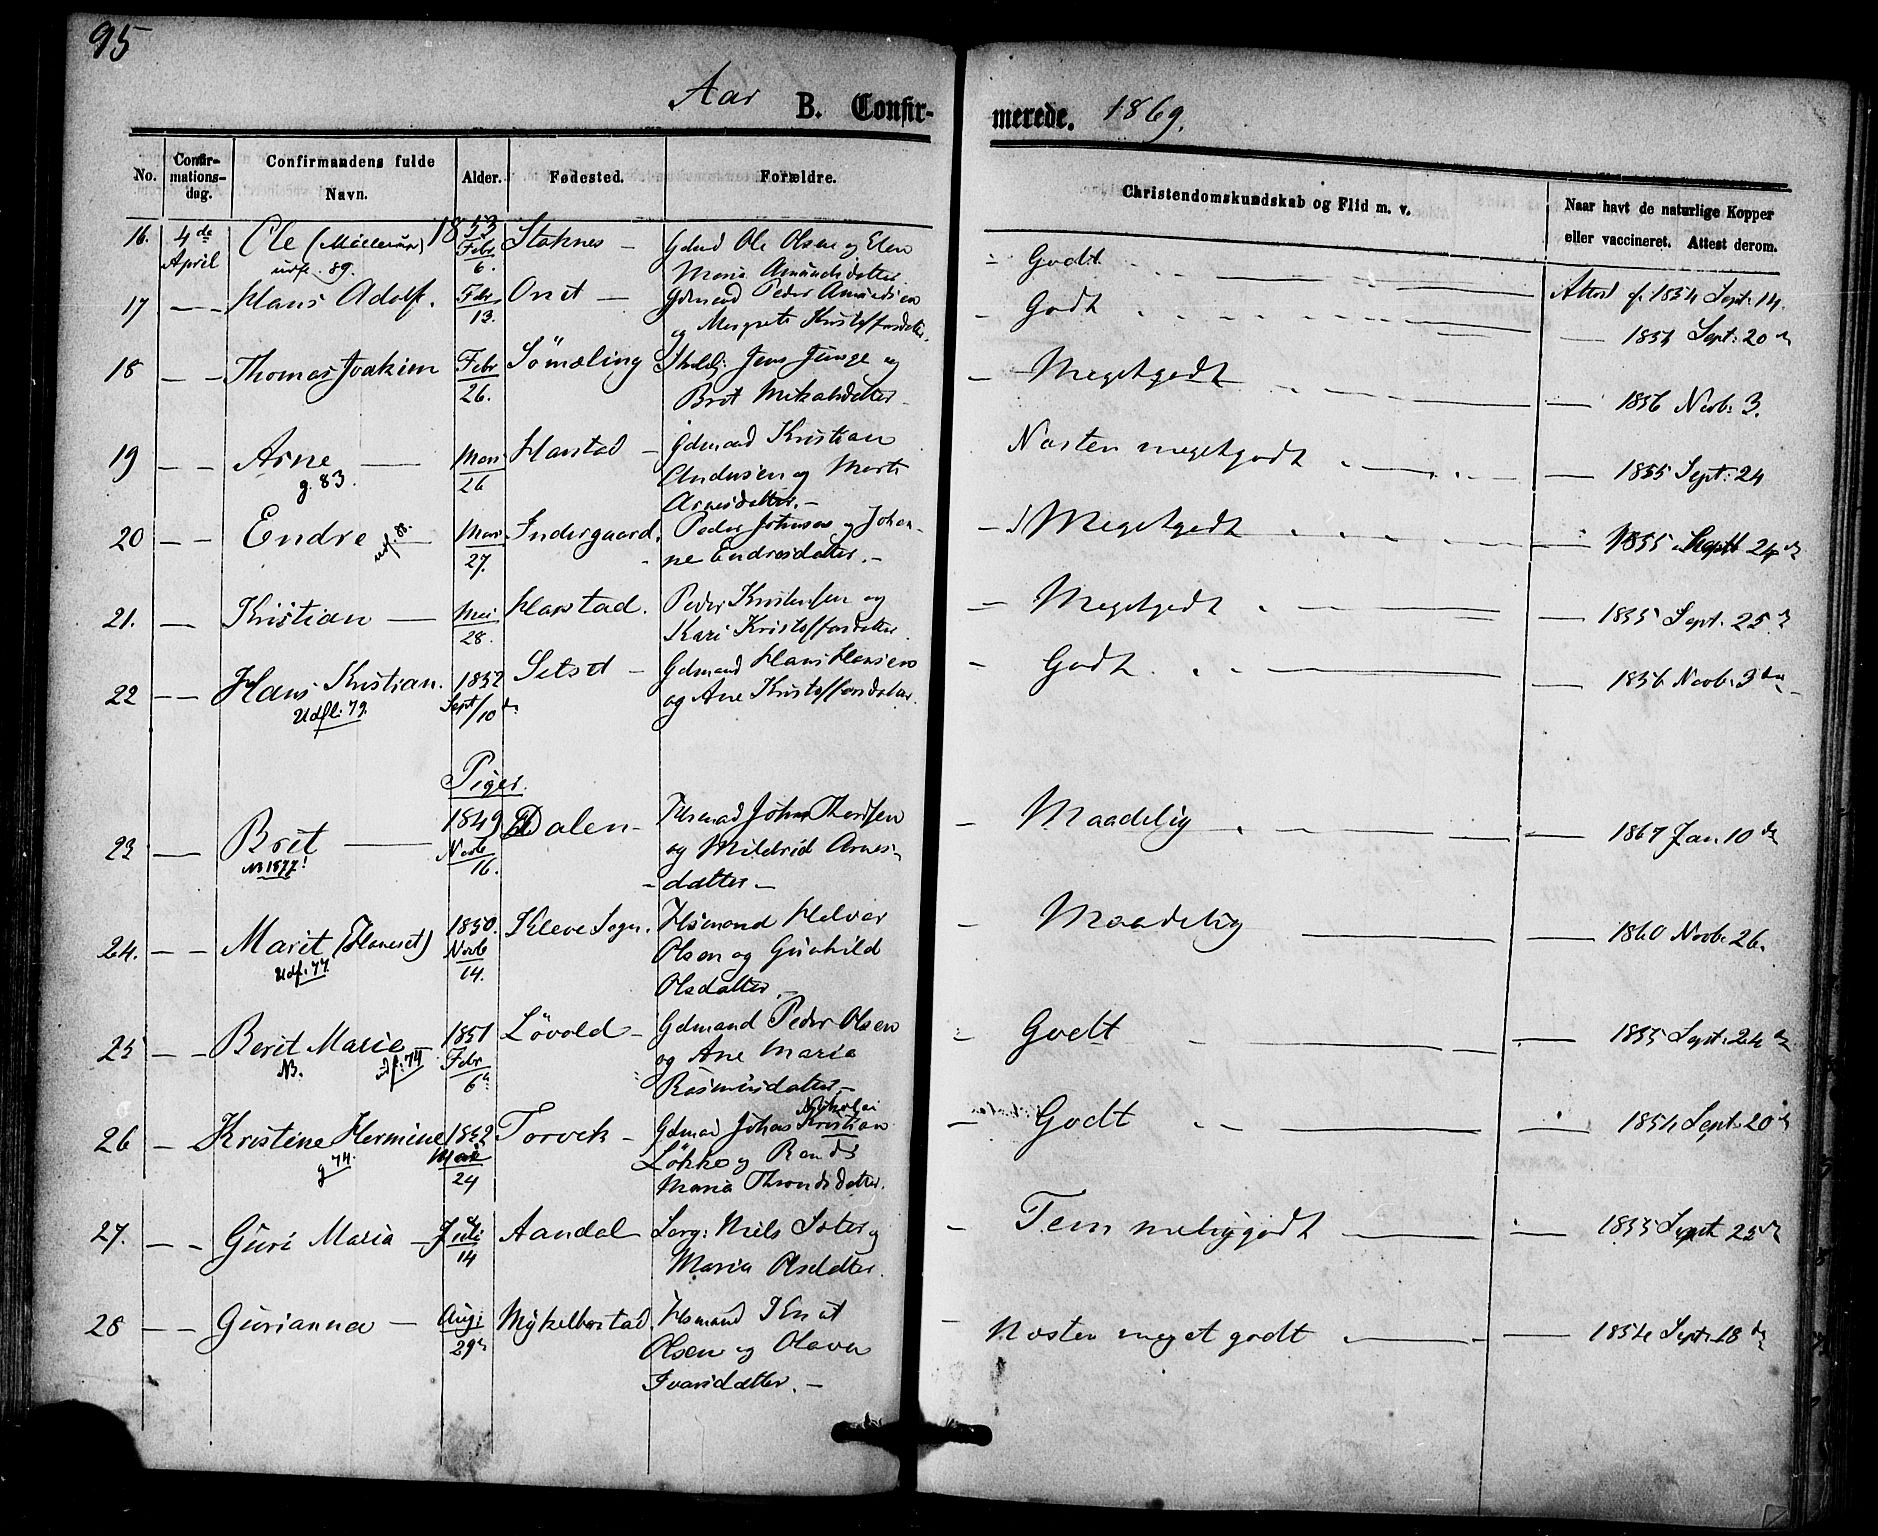 95
Aar B. Confirmerede. 1869.
No. Confirmationsdag. Confirmandens fulde Navn. Alder. Fødested. Forældre. Christendomskundskab og Flid m. v. Naar havt de naturlige Kopper eller vaccineret. Attest derom.
16. 4de April Ole udf. 89. 1853 Febr 6. Stoknes – Gdmd Ole Olsen og Elen
Maria Amundsdatter – Godt Attest f. 1854 Sept: 14.
17 – – Hans Adolf. Febr 13. Onet – Gdmand Peder Amundsen
og Mergrete Kristoffersdatter. – Godt – 1854 Sept: 20de
18 – – Thomas Joakim Febr 26. Sömæling Jens Junge og
Brit – Megetgodt – 1856 Novb: 3.
19 – – Arne – g. 83. Mars 26 Harstad – Gdmand Kristian
Andersen og Marte
Arnesdatter. – Næsten megetgodt – 1855 Sept: 24
20 – – Endre – udf. 88. Mars 27. Indergaard. Peder Johnsen og Johan-
ne Endresdatter. – – Megetgodt – 1855 Sept 24de
21. – Kristian – Mai 28. Harstad. Peder Kristensen og
Kari Kristoffersdatter. – Megetgodt – 1855 Sept. 25de
22 – – Hans Kristian. Udfl: 79. 1852 Sept/10de Setset – Gdmand Hans Hansen
og Ane Kristoffersdatter. – Godt – 1856 Novb. 3den
Piger.
23 – Brit – NB 1877! 1849 Novb 16. Dalen – Husmand John
og Mildrid Arnes-
datter – – Maadelig – 1867 Jan. 10de
24. – – Marit (Haneset) Udf: 77. 1850. Novb 14. Kleve Sogn. Husmand Halvor
Olsen og Gunhild
Olsdatter. – – Maadelig – 1860 Novb. 26.
25 – – Berit Marie – NB. udf: 74 1851 Febr 6te Lövold – Gdmand Peder Olsen
og Ane Maria
Rasmusdatter – – Godt – 1855 Sept. 24de
26 – Kristine Hermine g 74. 1852 Mai 24 Torvik – Gdmand Johas Nikolai Kristian
Løkke og Randi
Maria Throndsdatter. – Godt – 1854 Sept. 20de
27. – – Guri Maria – Juli 14 Aandal – Niels Sæter og
Maria Olsdatter. – Tem megetgodt – 1855 Sept 25de
28 – – Gurianna – Aug: 29de Mykelbostad. Husmand Knut
Olsen og Olava
Ivarsdatter. – – Næsten meget godt – 1854 Sept. 18de